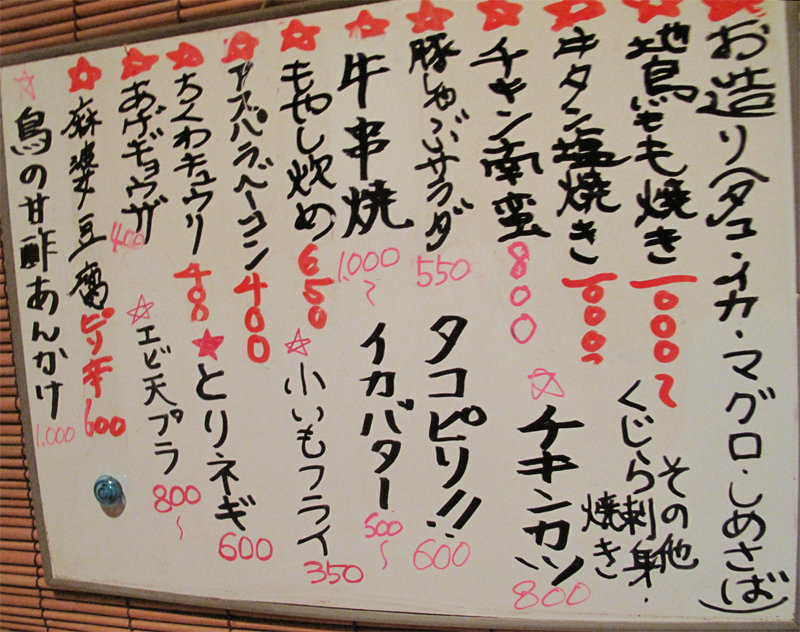 お造り(タコ・イカ・マグロ・しめさば)
地鳥もも焼き 1000〜
その他
くじら刺身・
焼き
牛タン塩焼き 1000〜
チキン南蛮 800
チキンカツ 800
豚しゃぶサラダ 550
タコピリ!! 600
牛串焼 1,000〜
イカバター 500〜
もやし炒め 650
小いもフライ 350
アスパラベーコン 400
とりネギ 600
ちくわキュウリ 400
あげギョウザ 400
エビ天プラ 800〜
麻婆豆腐 ピリ辛 600
鳥の甘酢あんかけ 1,000